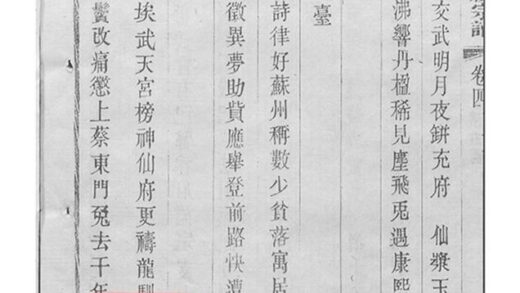 卷四
武明月夜鉼充府 仙漿玉
沸響丹楹稀見塵飛兎遇康熙
臺
詩律好蘇州稱數少貧落寓居
徵異夢助貲應舉登前路快遭
埃武天宮榜神仙府更禱龍
鬢改痛懲上蔡東門兔去千年